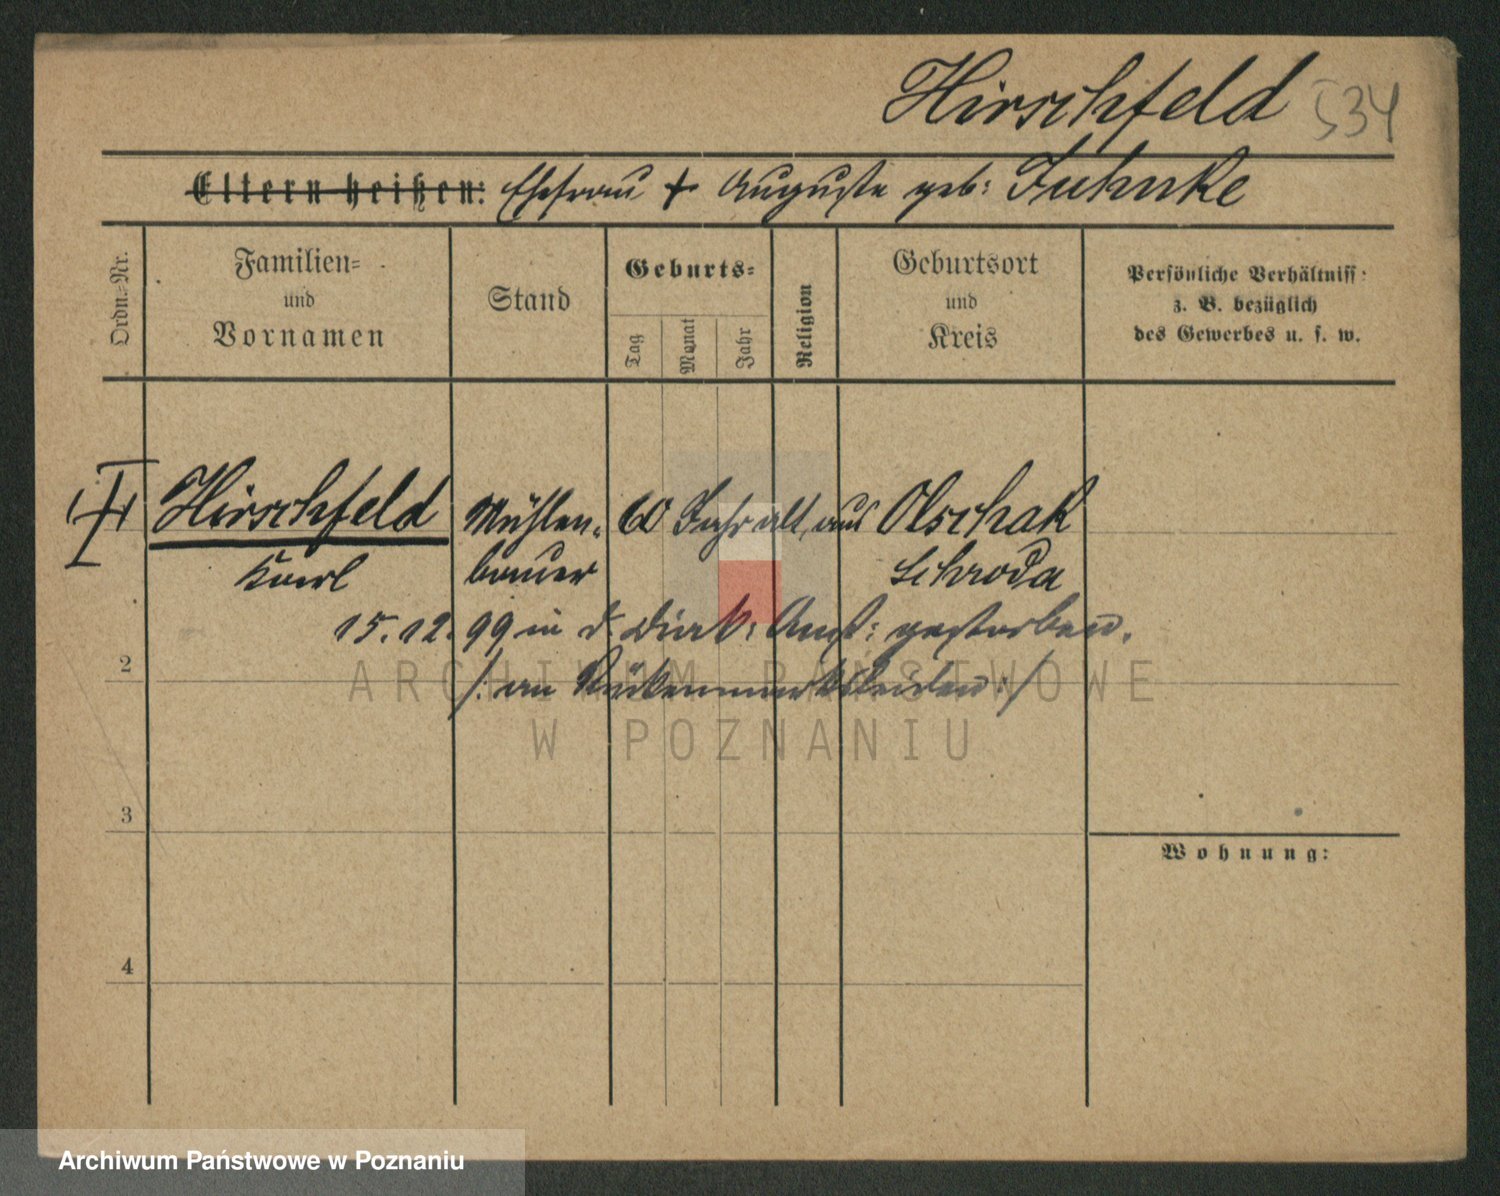 Hirschfeld 534
Eltern heißen: Ehefrau + Auguste geb: Juhnke
Ordn.-Nr.
Familien-
und
Vornamen
Stand
Geburts-
Tag
Monat
Jahr
Religion
Geburtsort
und
Kreis
Persönliche Verhältniss
z. B. bezüglich
des Gewerbes u. s. w.
Hirschfeld Mühlen- 60 Jahr alt, aus Olschak
Karl bauer Schroda
15.12.99 in d. Diak: Anst: gestorben.
/: an Rückenmarksleiden :/
2
3
4
Wohnung:
ARCHIWUM PAŃSTWOWE
W POZNANIU
Archiwum Państwowe w Poznaniu